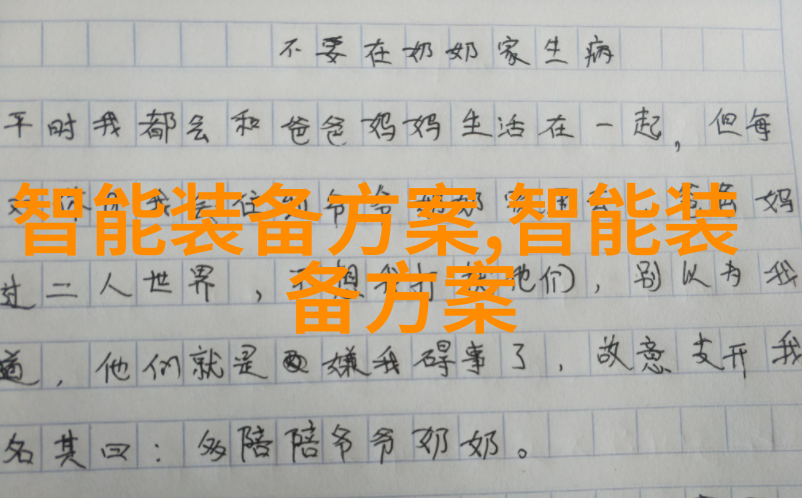 不要在奶奶家生病
平时我都会和爸爸妈妈生活在一起，但每
我会住到爷爷奶奶家 爸爸妈
智能装备方案,智能装
备方案
过二人世界，不想我打扰他们，别以为我
道，他们就是嫌我碍事了，故意支开我
名其曰：多陪陪爷爷奶奶。